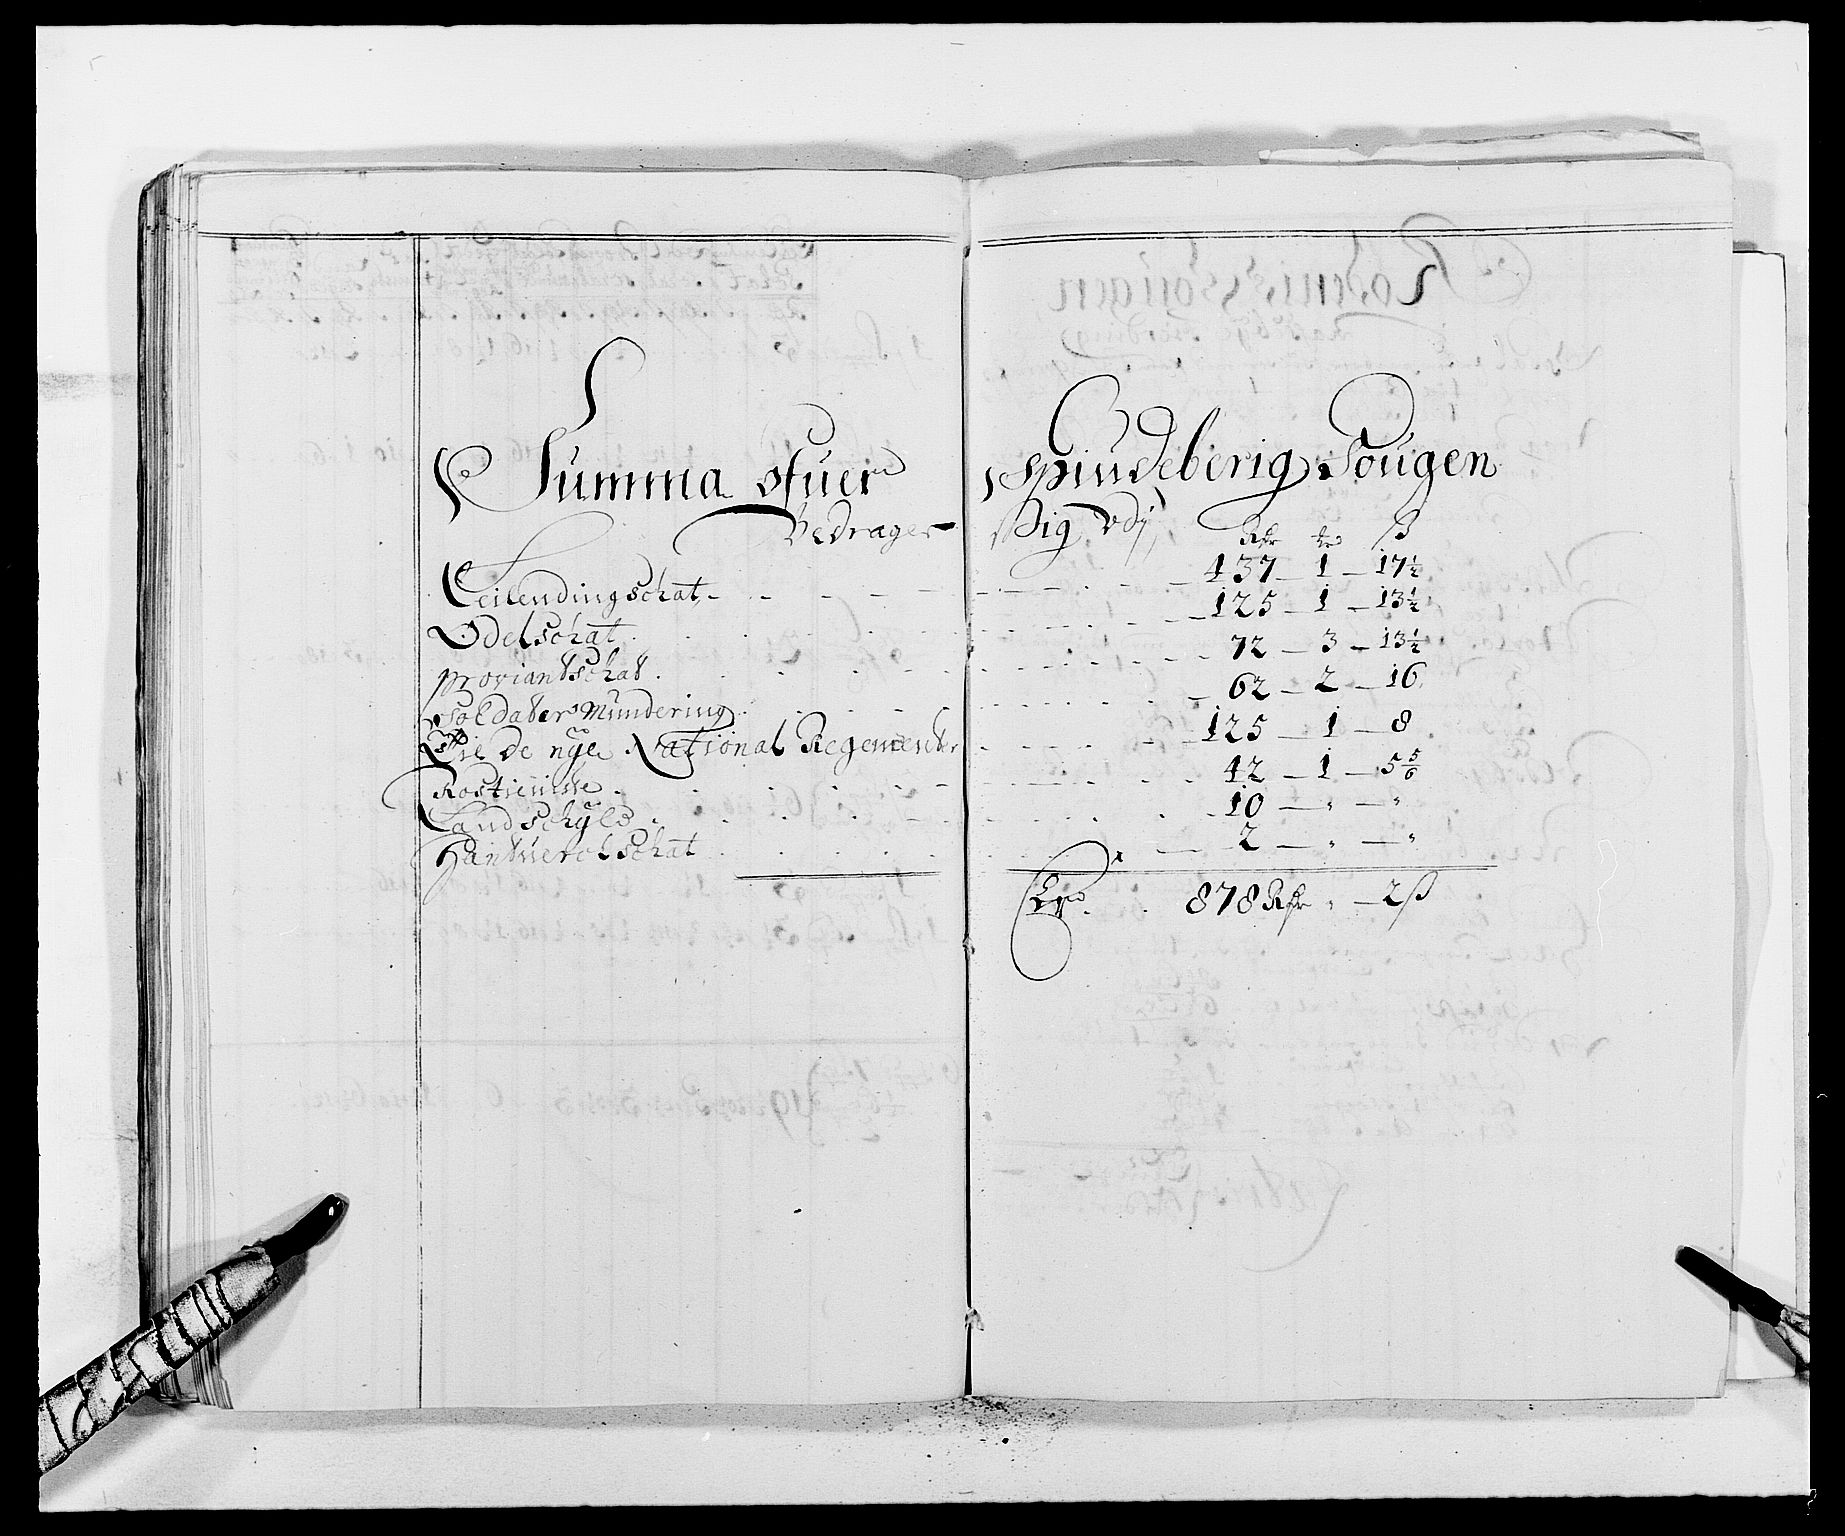 Summa ofuer Spindeberig Sougen
Bedrager Sig udj
Rdr ort ß
Leilendingschat 437 – 1 – 17½
Odelschat 125 – 1 – 13½
Proviantschat 72 – 3 – 13½
Soldater Mundering 62 – 2 – 16
Til de nÿe National Regementer 125 – 1 – 8
Rostieniste 42 – 1 – 5 5/6
Landschÿld 10 – " – "
Hantuerchschat 2 – " – "
Er 878 Rdr " – 2 ß